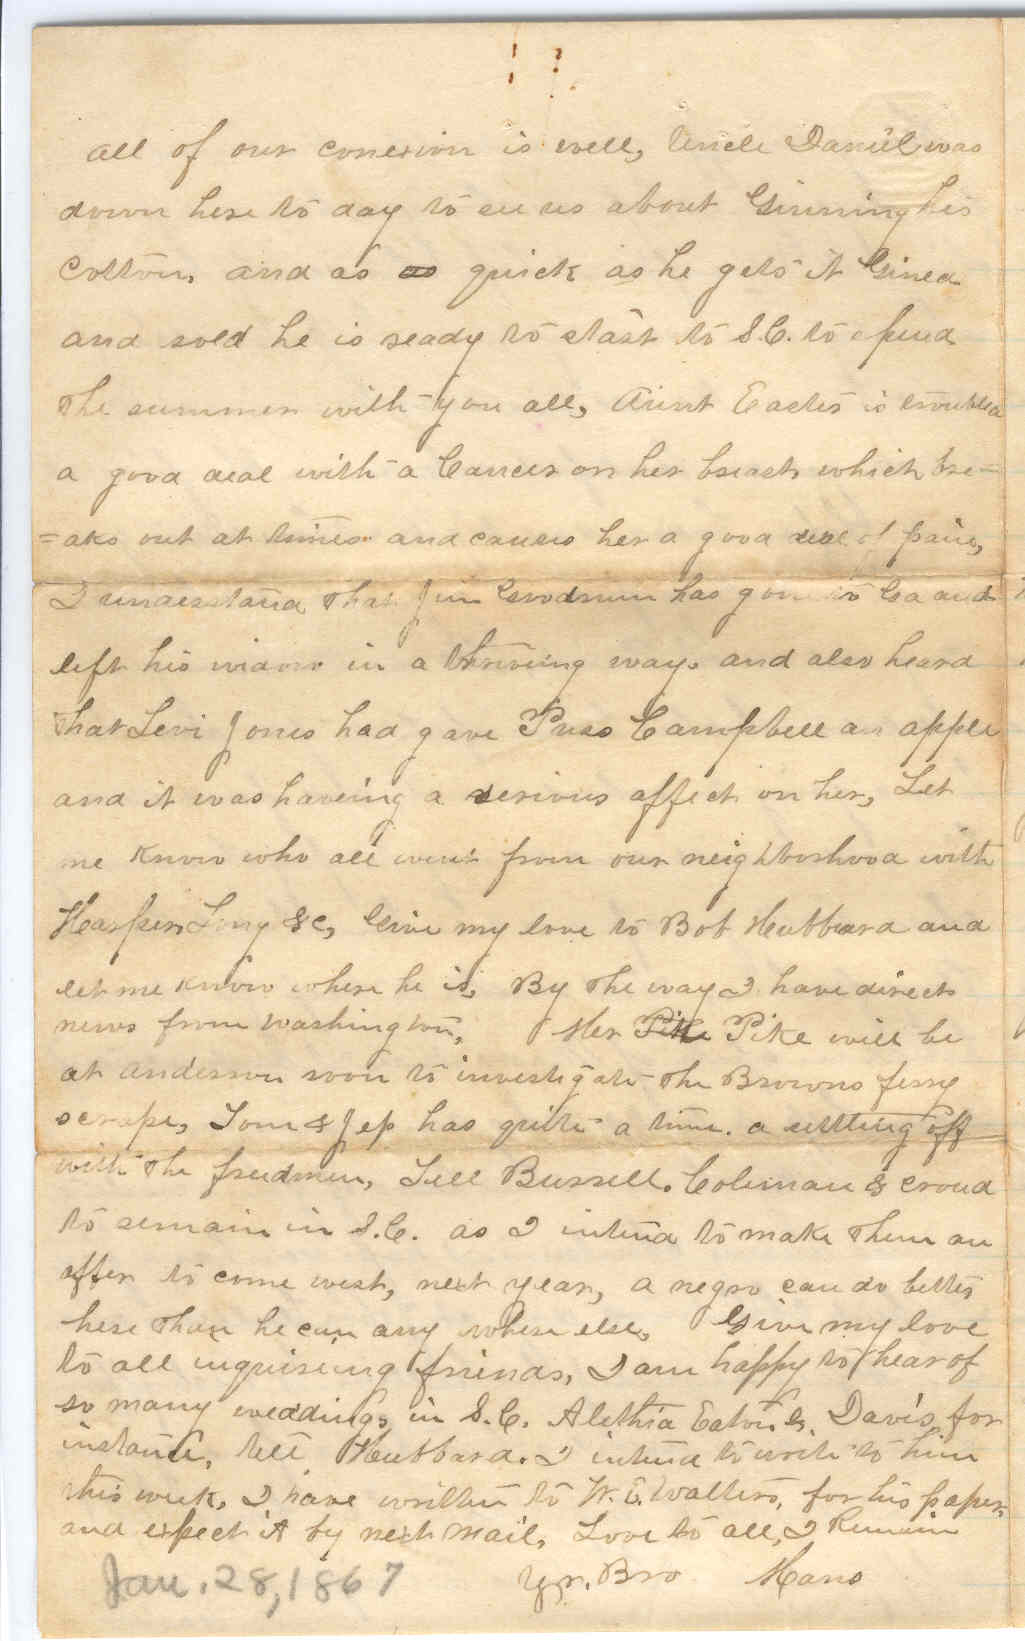 all of our conexion is well, Uncle Daniel was
down here to day to see us about Ginning his
Cotton, and as as quick as he gets it Gined
and sold he is ready to start to S.C. to spend
the summer with you all, Aunt Easter is troubled
a good deal with a Cancer on her breast which bre-
=aks out at times and causes her a good deal of pain,
I understand that Jim Goodrum has gone to Ga and
left his widow in a thriveing way. and also heard
that Levi Jones had gave Puss Campbell an apple
and it was haveing a serious affect on her, Let
me know who all went from our neighborhood with
Harper, Long &c, Give my love to Bob Hubbard and
let me know where he is, By the way I have direct
news from Washington, Mer Pike Pike will be
at anderson soon to investigate the Browns ferry
scrape, Tom & Jep has quite a time. a settling off
with the freedmen, Tell Burrell. Coleman & croud
to remain in S.C. as I intend to make them an
offer to come west, next year, a negro can do better
here than he can any where else. Give my love
to all inquireing friends, I am happy to hear of
so many weddings in S.C. Alethia Eaton & Davis for
instance, tell Hubbard. I intend to write to him
this week, I have written to W.E. Walters, for his paper,
and expect it by next mail, Love to all, I Remain
Yr. Bro Mans
Jan. 28, 1867